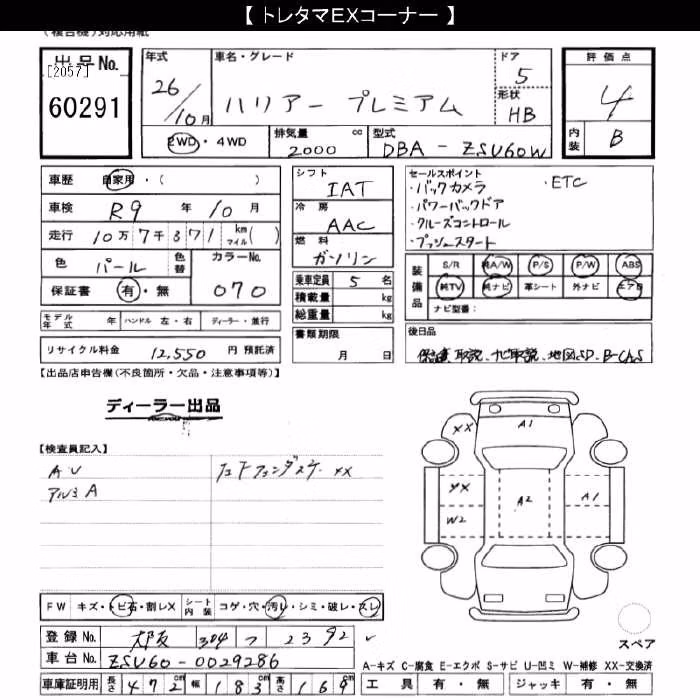 【 トレタマEXコーナー 】
(複合機)対応用紙
出品No.
[2057]
60291
年式
26/10月
車名・グレード
ハリアー プレミアム
ドア
5
形状
HB
評価点
4
内装
B
2WD・4WD
排気量 cc
2000
型式
DBA-ZSU60W
車歴 自家用・( )
車検 R9 年 10 月
走行 10万7千371 km マイル( )
色 パール 色替 カラーNo. 070
保証書 有・無
シフト
IAT
冷房
AAC
燃料
ガソリン
乗車定員 5 名
積載量 kg
総重量 kg
書類期限
月 日
セールスポイント
・バックカメラ ・ETC
・パワーバックドア
・クルーズコントロール
・プッシュスタート
装備品
S/R 純A/W P/S P/W ABS
純TV 純ナビ 革シート 外ナビ エアB
ナビ型番:
モデル年式 年 ハンドル 左・右 ディーラー・並行
リサイクル料金 12,550 円 預託済
後日品
保証書、取説、ナビ取説、地図SD、B-CAS
【出品店申告欄(不良箇所・欠品・注意事項等)】
ディーラー出品
【検査員記入】
AU
アルミA
XX
XX
A1
XX
W2
A2
A1
FW キズ・トビ石・割レX
シート内装 コゲ・穴・汚レ・シミ・破レ・スレ
登録No. 大阪 304 フ 2392
車台No. ZSU60-0029286
車庫証明用 長さ 472cm 幅 183cm 高さ 169cm
スペア
A-キズ C-腐食 E-エクボ S-サビ U-凹ミ W-補修 XX-交換済
工具 有・無 ジャッキ 有・無